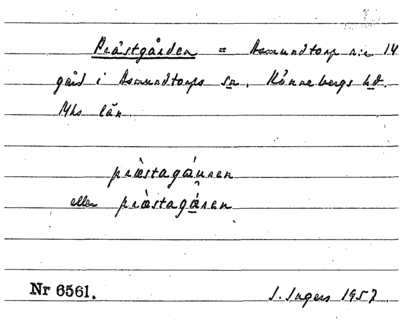 Prästgården = Asmundtorp nr 14
gård i Asmundtorps sn, Rönnebergs hd.
Mhs län.
prästagáuren
eller prästagåren
Nr 6561. I. Ingers 1957